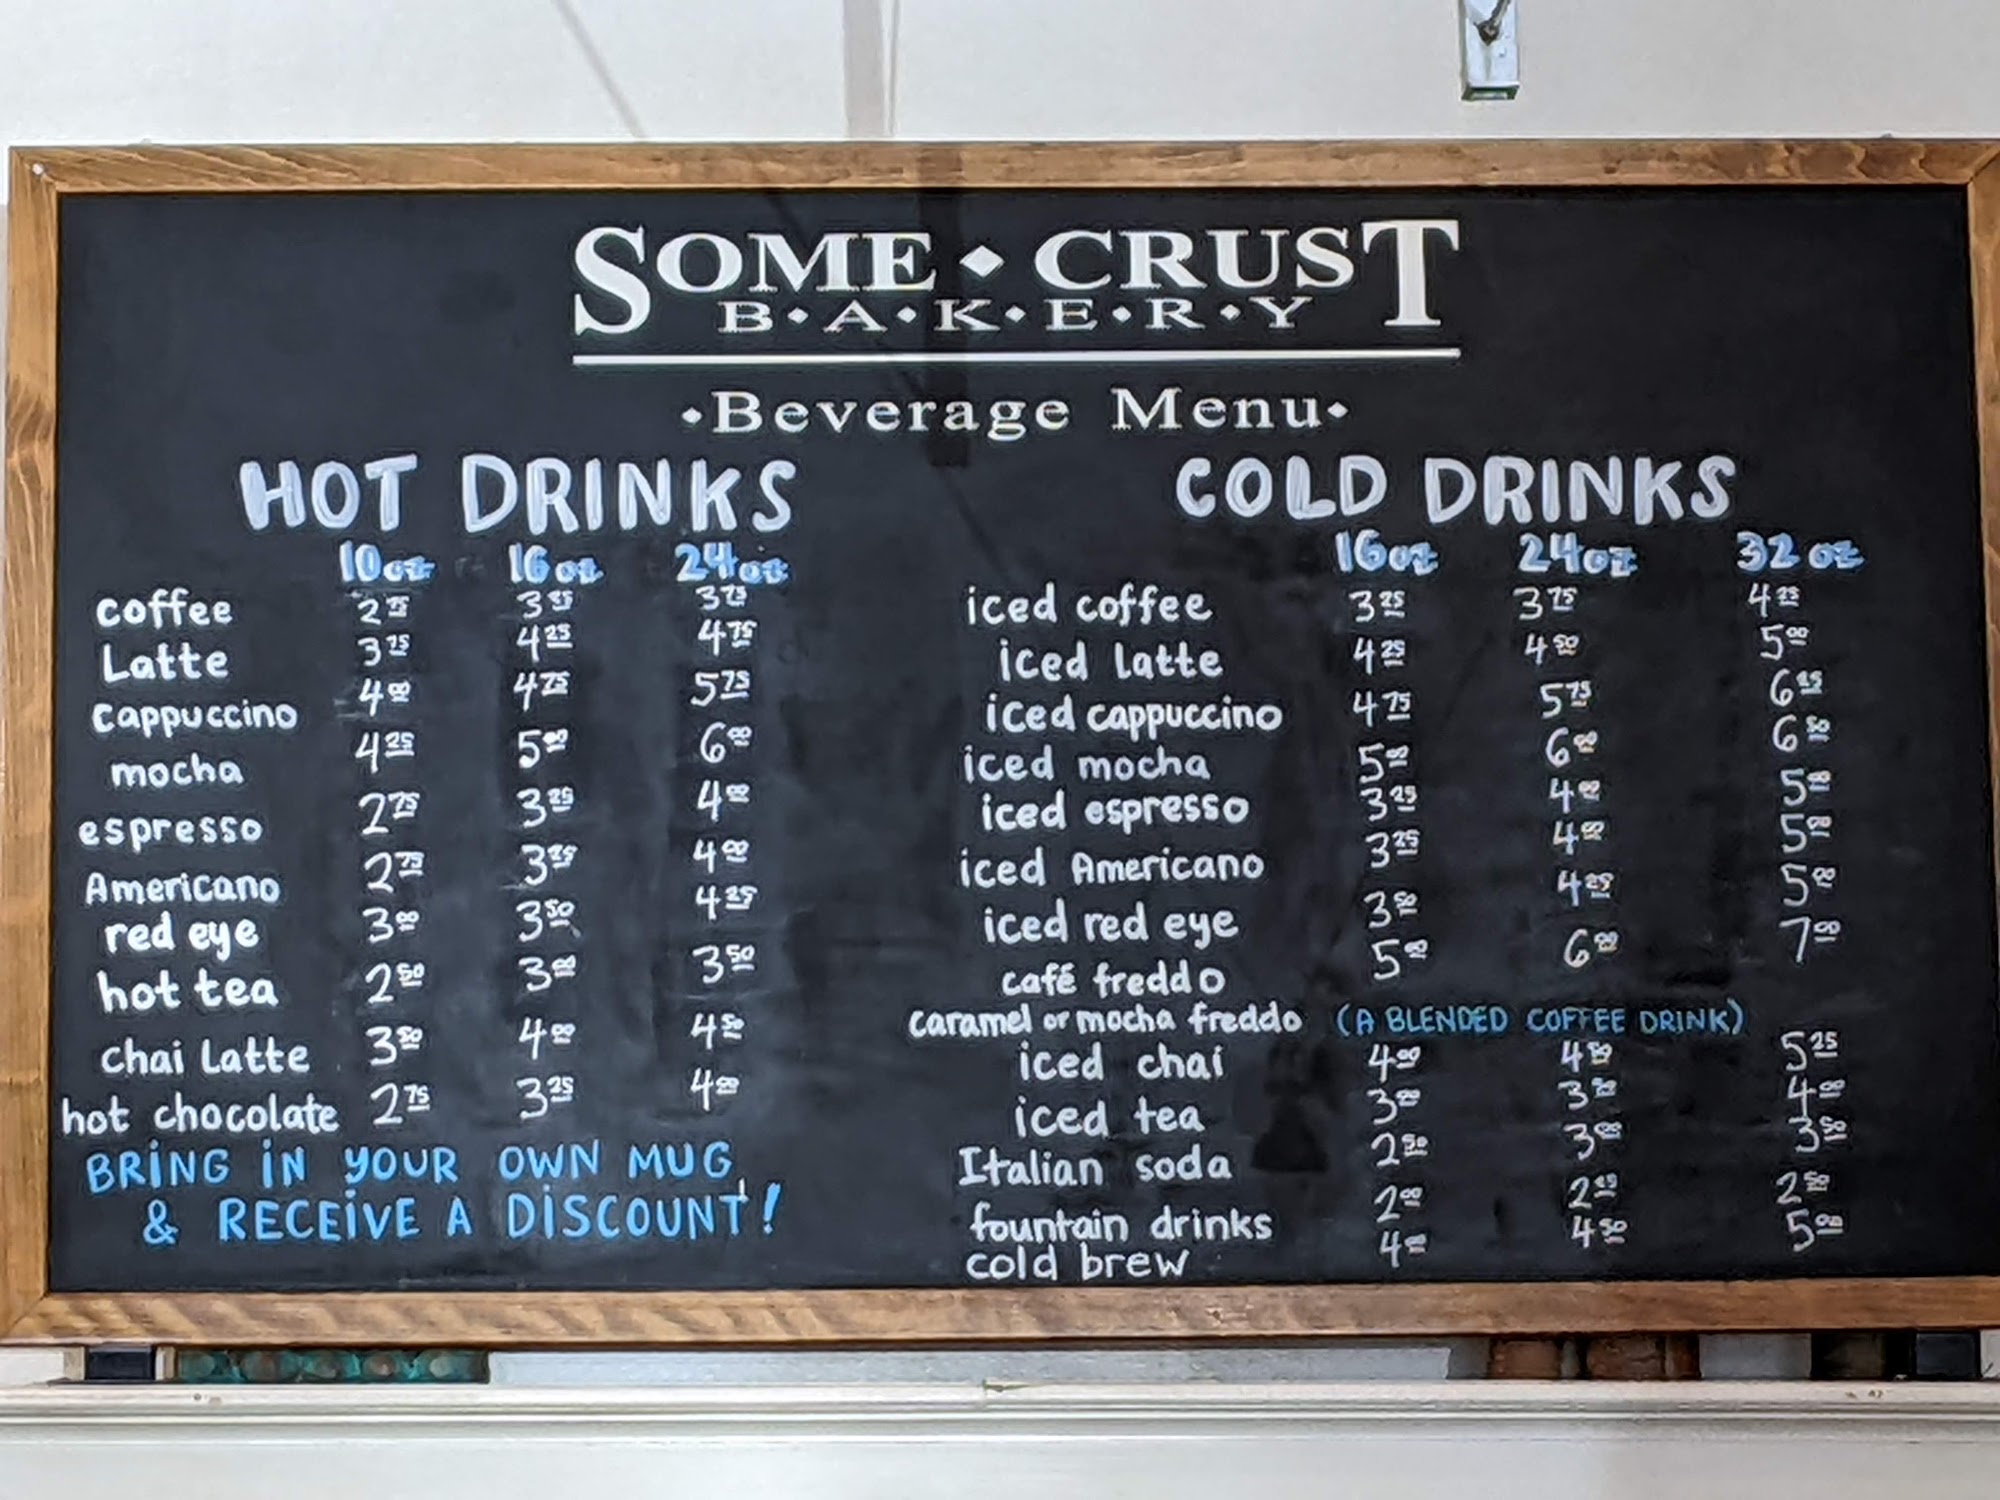 SOME CRUST
B·A·K·E·R·Y
·Beverage Menu·
HOT DRINKS
10oz 16oz 24oz
coffee 2 75 3 25 3 75
Latte 3 75 4 25 4 75
Cappuccino 4 00 4 75 5 75
mocha 4 25 5 00 6 00
espresso 2 75 3 25 4 00
Americano 2 75 3 25 4 00
red eye 3 00 3 50 4 25
hot tea 2 50 3 00 3 50
chai Latte 3 50 4 00 4 50
hot chocolate 2 75 3 25 4 00
BRING IN YOUR OWN MUG
& RECEIVE A DISCOUNT!
COLD DRINKS
16oz 24oz 32 oz
iced coffee 3 25 3 75 4 25
iced latte 4 25 4 50 5 00
iced cappuccino 4 75 5 75 6 25
iced mocha 5 00 6 00 6 50
iced espresso 3 25 4 00 5 00
iced Americano 3 25 4 00 5 00
iced red eye 3 50 4 25 5 00
café freddo 5 00 6 00 7 00
caramel or mocha freddo (A BLENDED COFFEE DRINK)
iced chai 4 00 4 50 5 25
iced tea 3 00 3 50 4 00
Italian soda 2 50 3 00 3 50
fountain drinks 2 00 2 25 2 50
cold brew 4 00 4 50 5 00